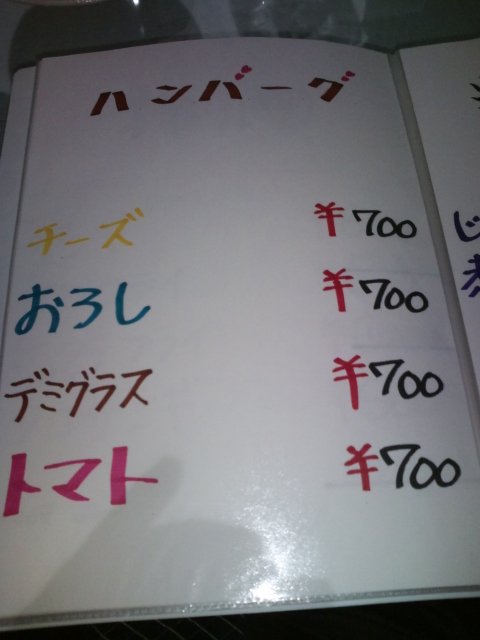 ハンバーグ
チーズ ¥700
おろし ¥700
デミグラス ¥700
トマト ¥700